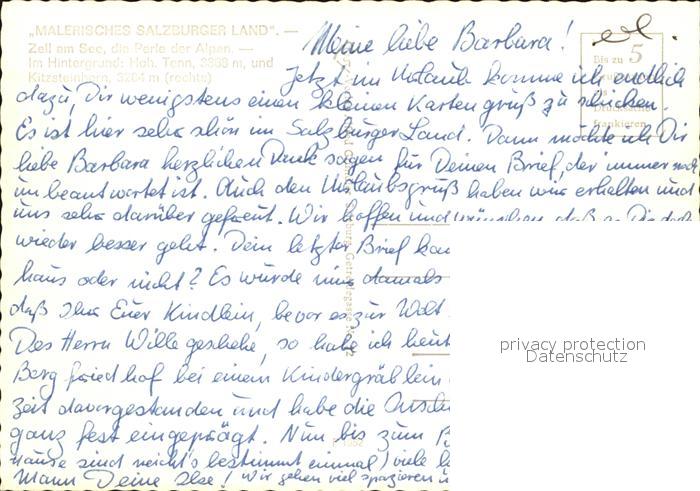 „MALERISCHES SALZBURGER LAND". —
Zell am See, die Perle der Alpen. —
Im Hintergrund: Hoh. Tenn, 3368 m, und
Kitzsteinhorn, 3204 m (rechts)
Bis zu 5
frankieren
Meine liebe Barbara!
Jetzt im Urlaub komme ich endlich
dazu, Dir wenigstens einen kleinen Kartengruß zu schicken.
Es ist hier sehr schön im Salzburger Land. Dann möchte ich Dir
liebe Barbara herzlichen Dank sagen für Deinen Brief, der immer noch
unbeantwortet ist. Auch den Urlaubsgruß haben wir erhalten und
uns sehr darüber gefreut. Wir hoffen und wünschen, daß es Dir doch
wieder besser geht. Dein letzter Brief
haus oder nicht? Es wurde mir damals
daß Ihr Euer Kindlein, bevor es zur Welt
Des Herrn Wille geschehe, so habe ich heut
Bergfriedhof bei einem Kindergräblein
Zeit davorgestanden und habe die
ganz fest eingeprägt. Nun bis zum
Hause sind reicht's bestimmt einmal) viele
Mann Deine Ilse! Wir gehen viel spazieren
privacy protection
Datenschutz